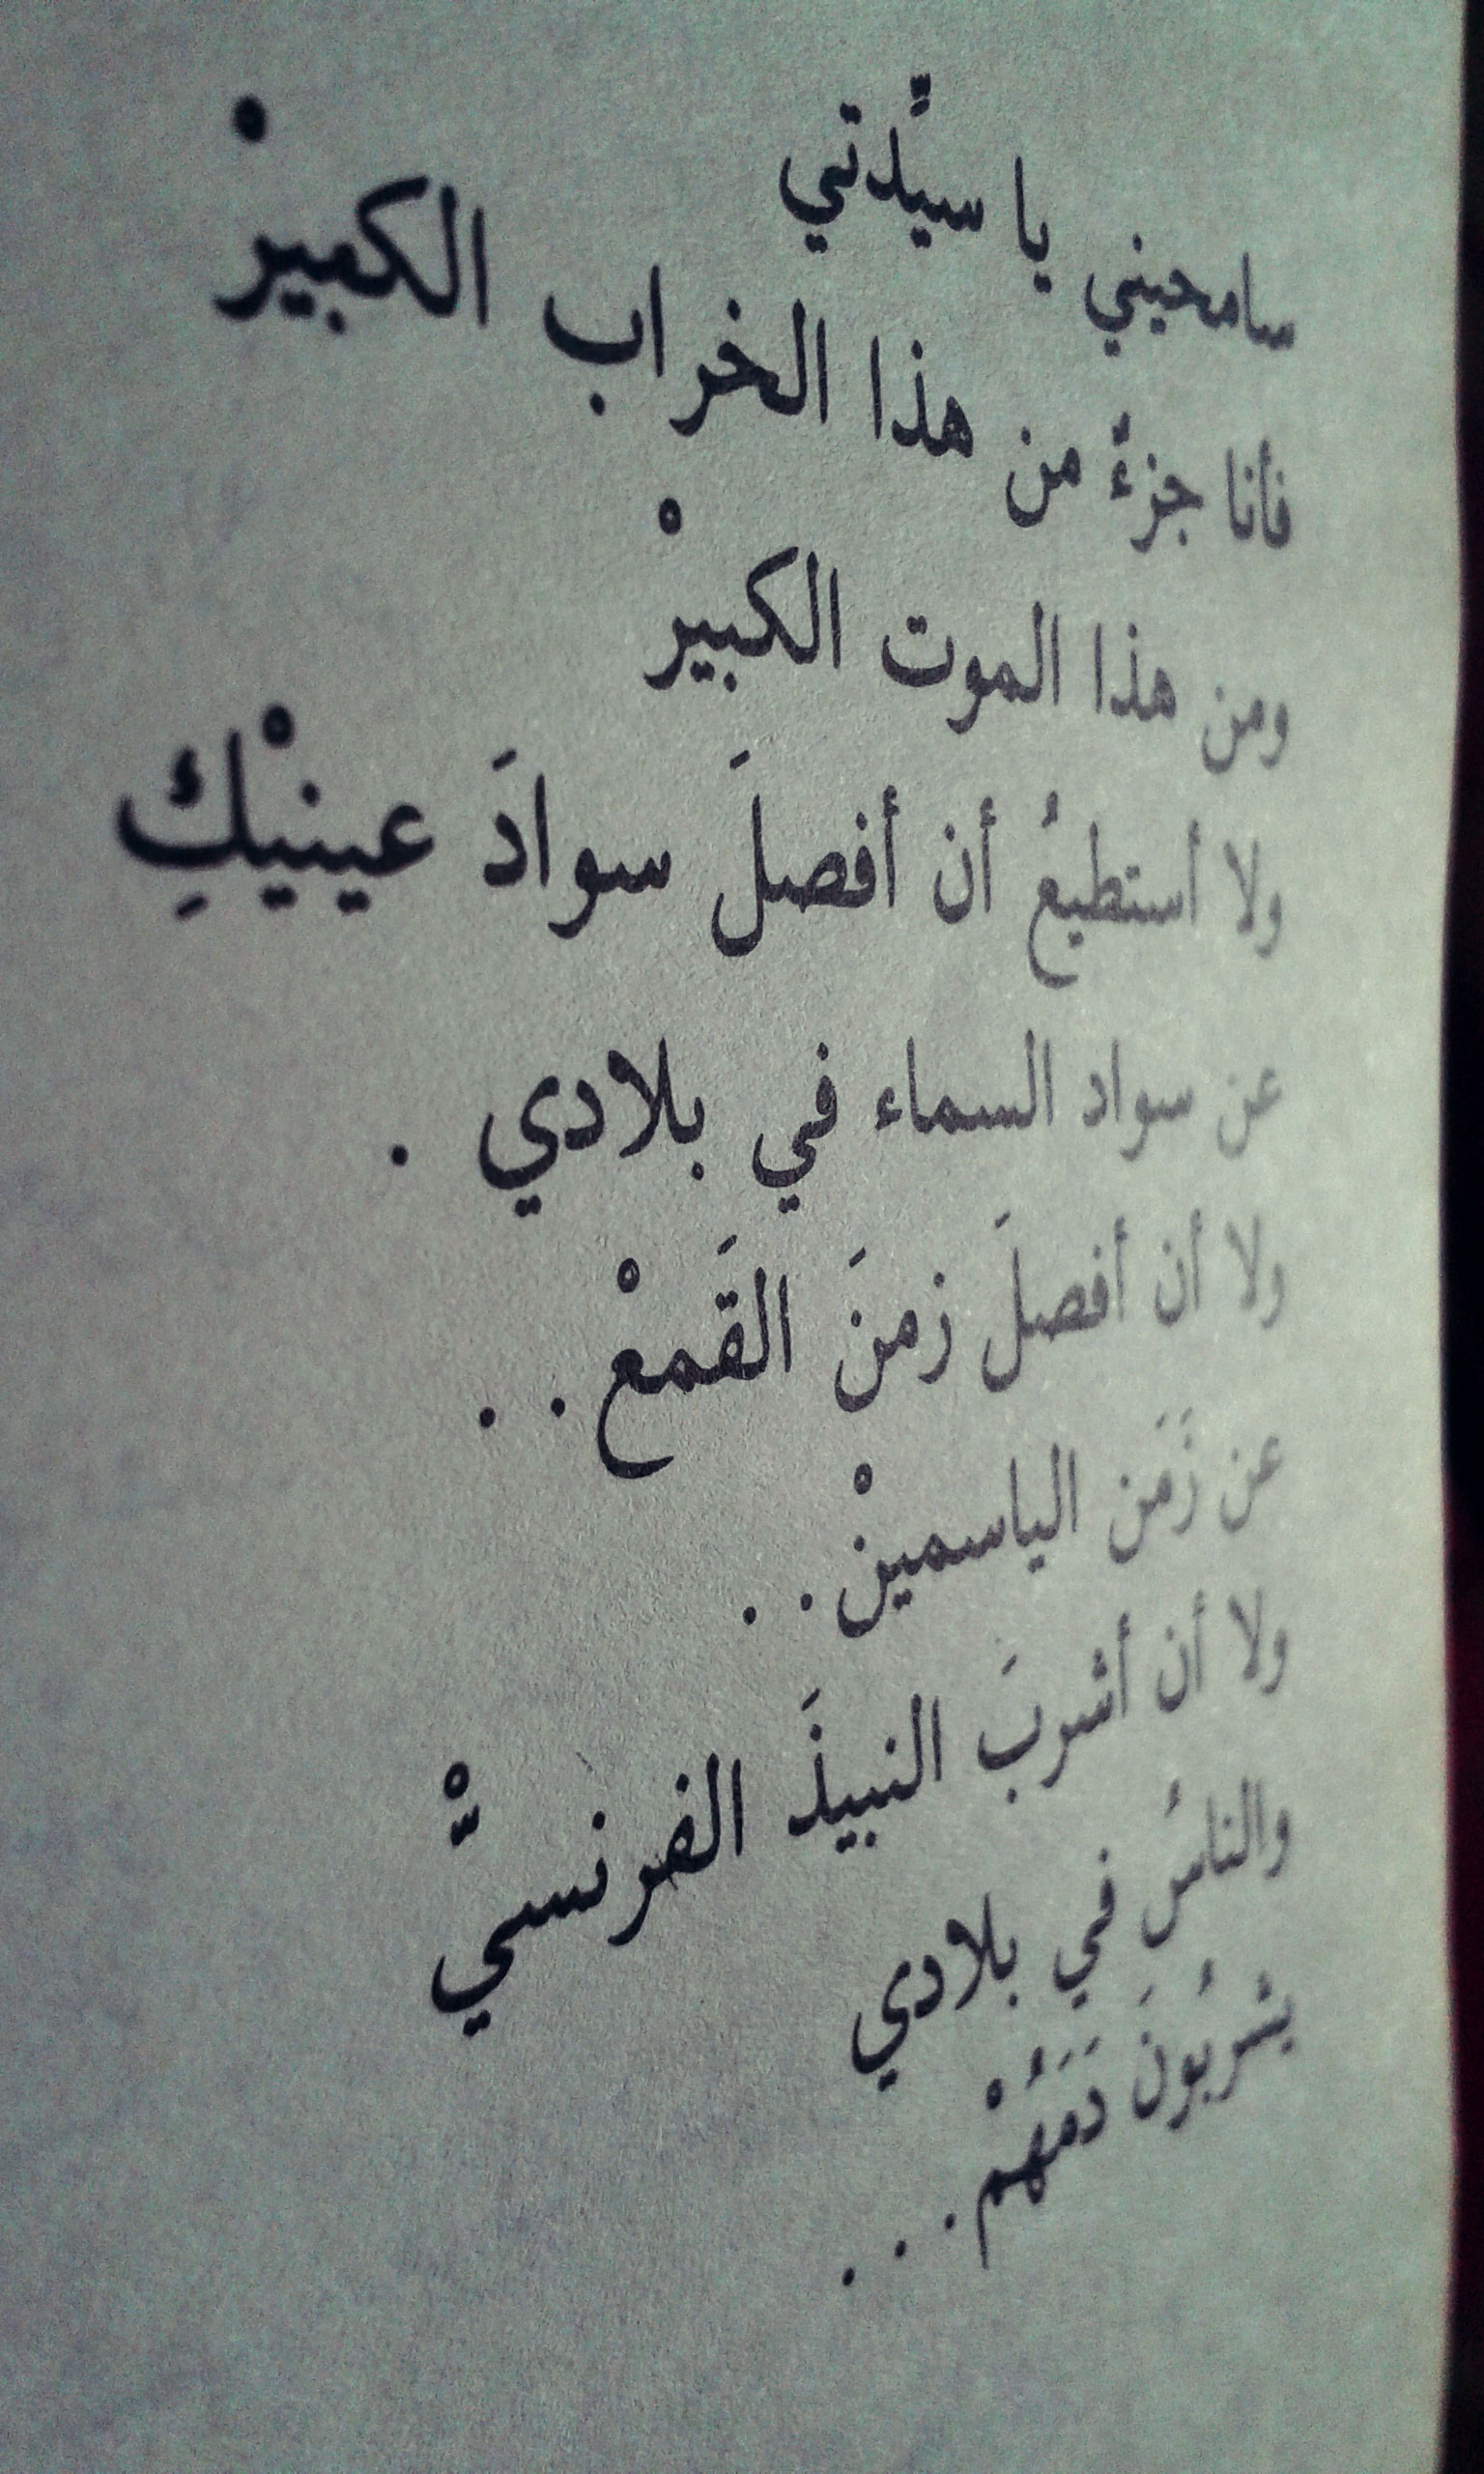 سامحيني يا سيِّدتي
فأنا جزءٌ من هذا الخراب الكبيرْ
ومن هذا الموت الكبيرْ
ولا أستطيعُ أن أفصلَ سوادَ عينيْكِ
عن سواد السماء في بلادي .
ولا أن أفصلَ زمنَ القَمعْ . .
عن زَمَن الياسمينْ . .
ولا أن أشربَ النبيذَ الفرنسيّْ
والناسُ في بلادي
يشربُونَ دَمَهُمْ . . .